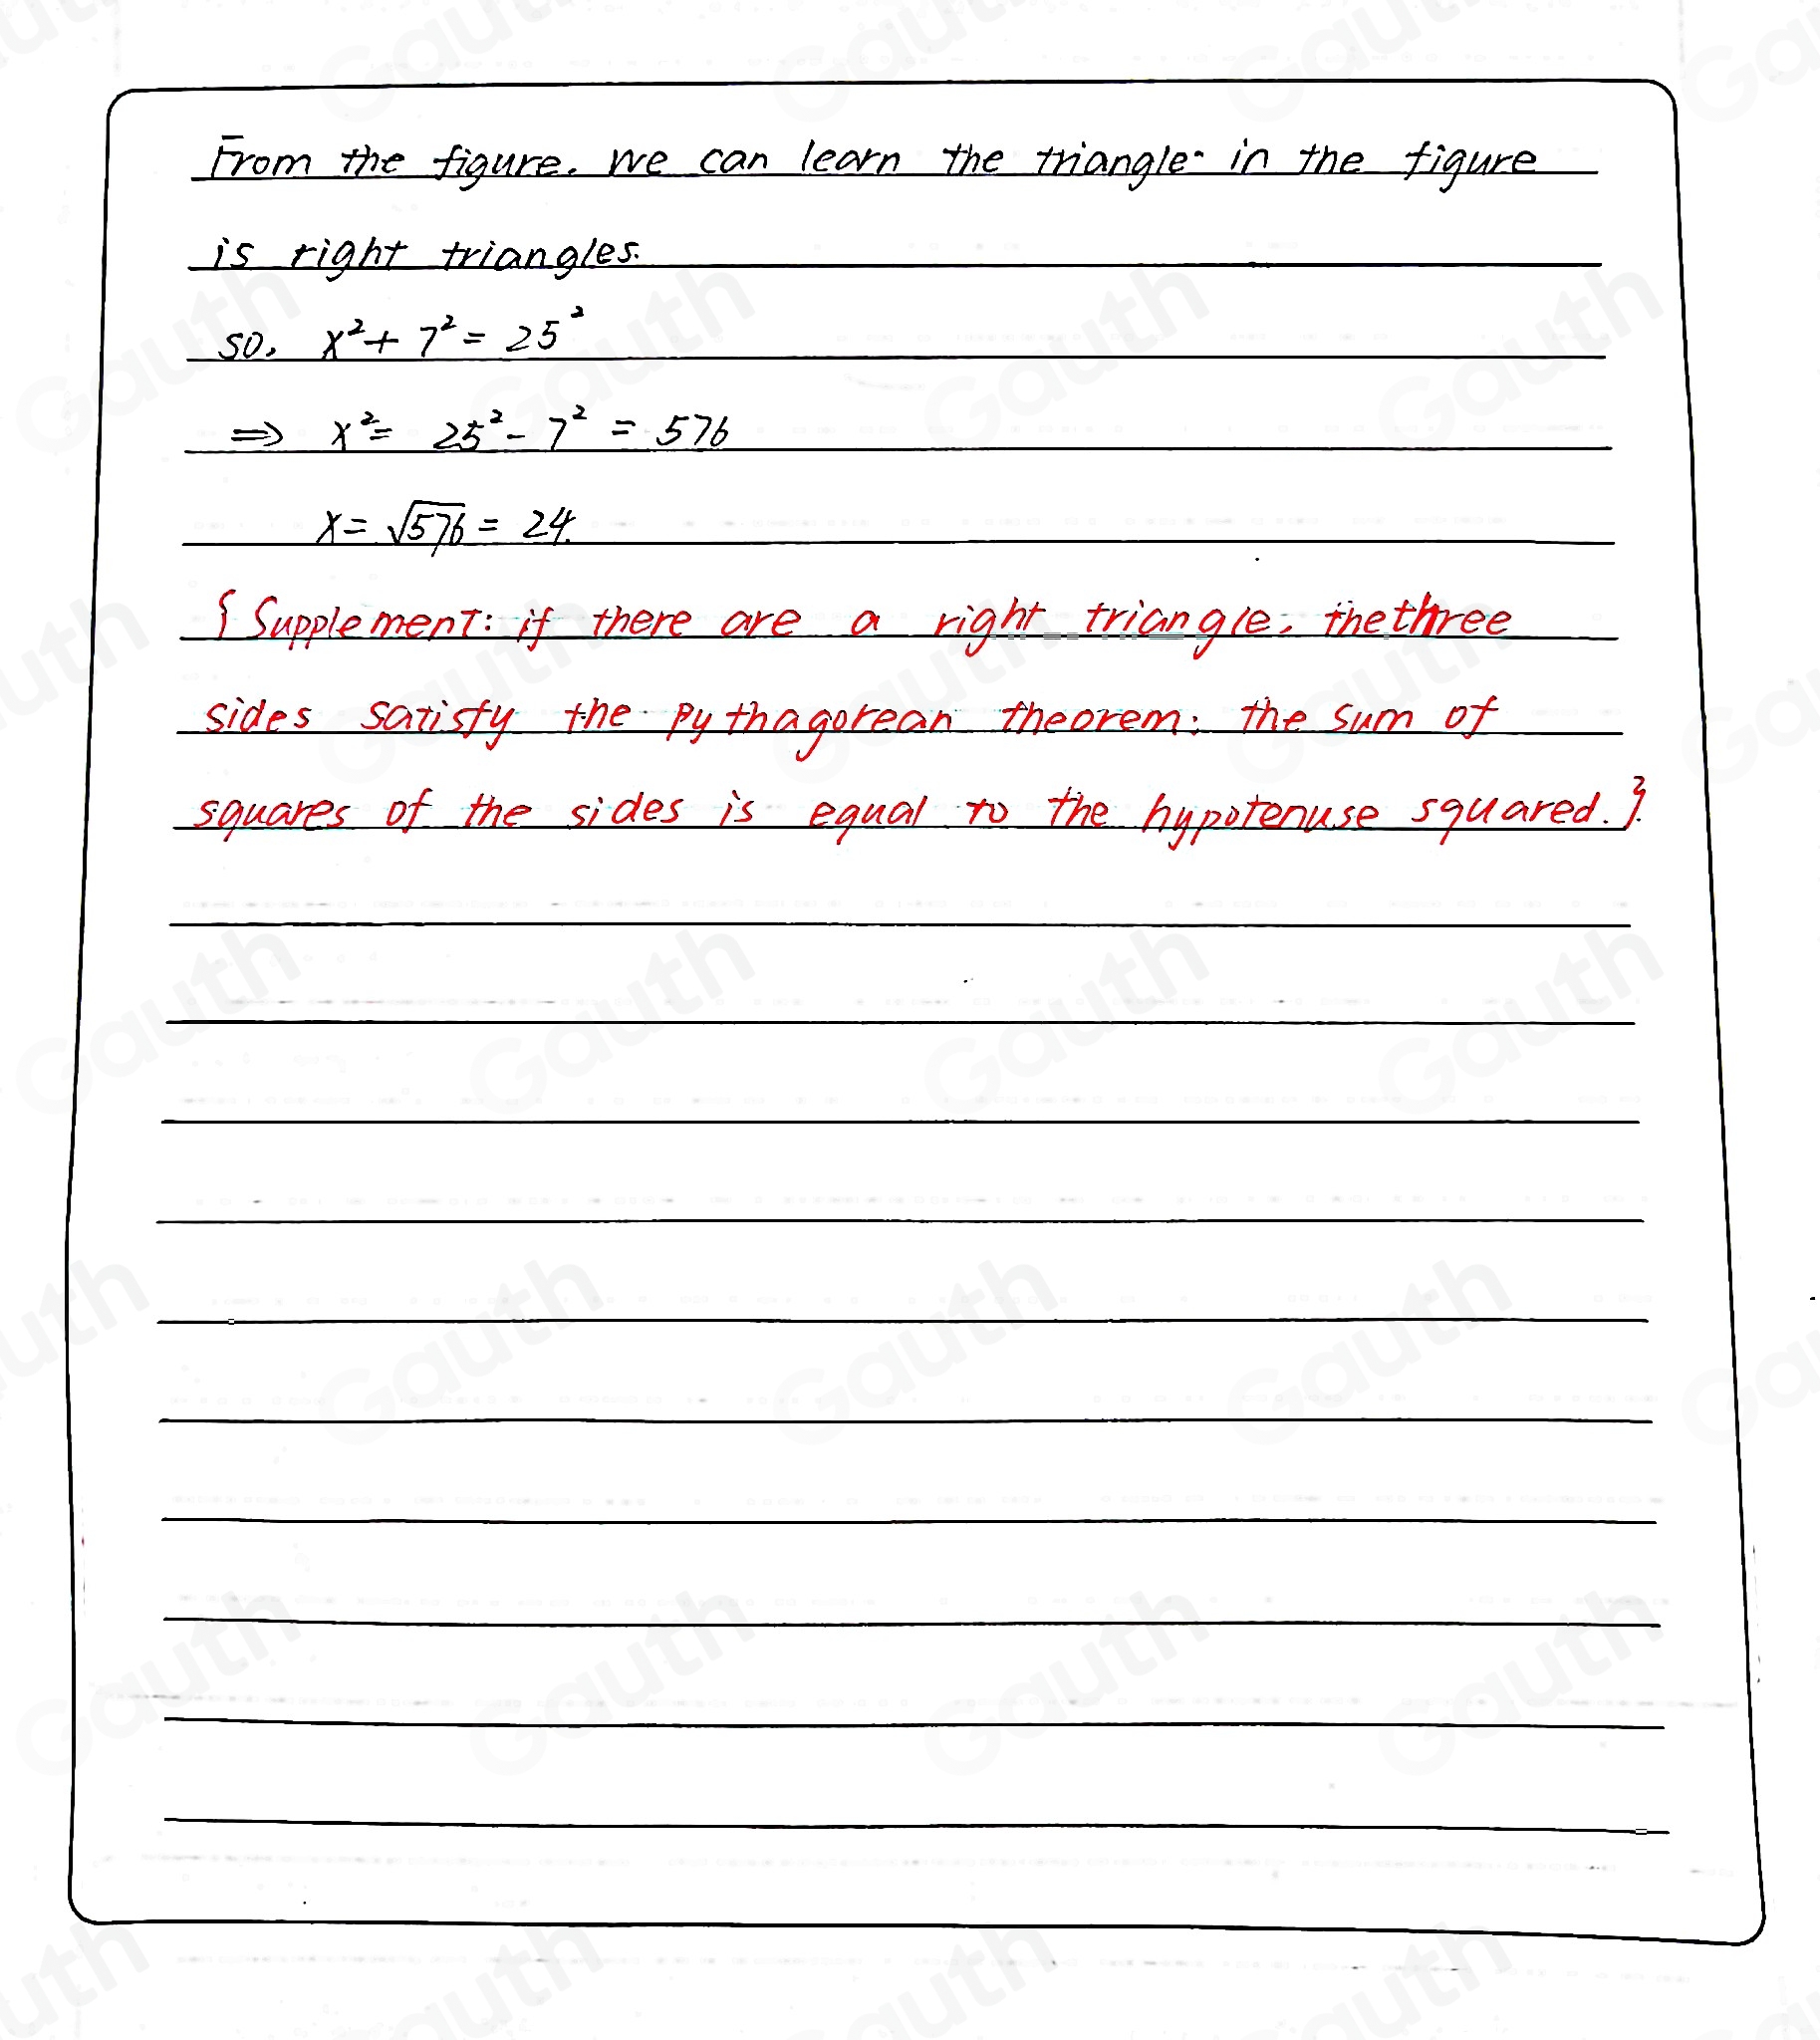 From the figure. we can learn the triangle in the figure
is right triangles.
so, x²+ 7² = 25²
⇒ x² = 25² - 7² = 576
x = √576 = 24.
{Supplement: if there are a right triangle, the three
sides satisfy the pythagorean theorem: the sum of
squares of the sides is equal to the hypotenuse squared.}
Gauth